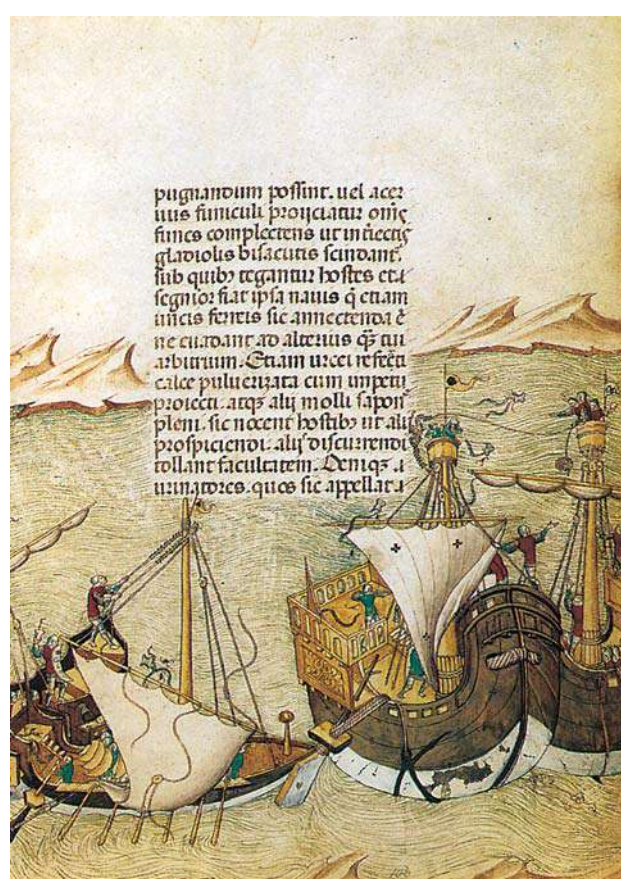 pugnandum possint. uel acer
uus funiculi proijciatur oms̃
funes complectens ut iniectis
gladiolis bisacutis scindant̃.
sub quibꝫ tegantur hostes et
segnior fiat ipsa nauis q̃ etiam
uncis ferreis sic annectenda ẽ
ne euadant ad alterius qꝫ tui
arbitrium. Etiam urcei refecti
calce puluerizata cum impetu
proiecti. atqꝫ alij molli sapon̄
pleni. sic nocent hostibꝫ ut alij
prospiciendi. alij discurrendi
tollant facultatem. Deniqꝫ
urinatores. quos sic appellat